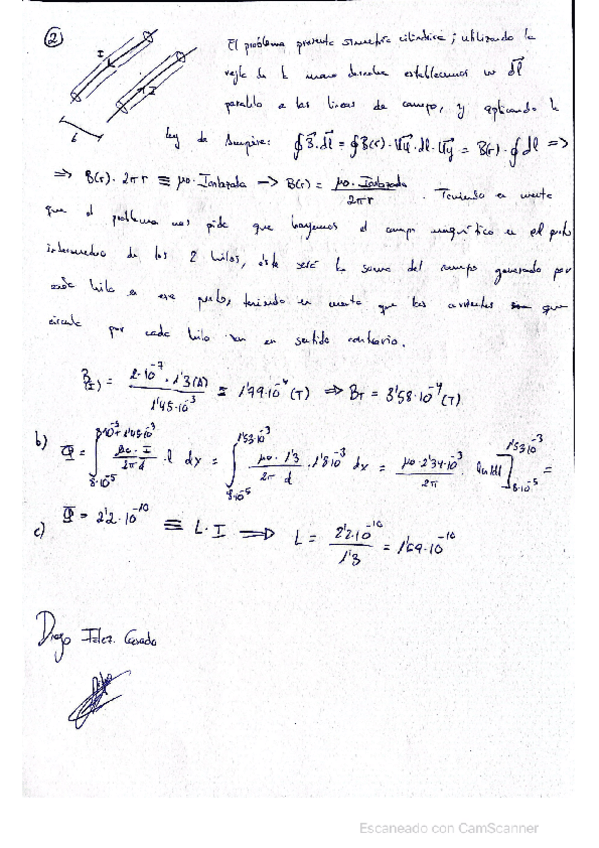 ②
I
I
b
El problema presenta simetría cilíndrica; utilizando la
regla de la mano derecha establecemos un dl⃗
paralelo a las líneas de campo, y aplicando la
ley de Ampère: ∮B⃗·dl⃗ = ∮B(r)·u⃗φ·dl·u⃗φ = B(r)·∮dl =>
=> B(r)·2πr ≡ μ0·Ienlazada -> B(r) = μ0·Ienlazada / 2πr . Teniendo en mente
que el problema nos pide que hayemos el campo magnético en el punto
intermedio de los 2 hilos, éste será la suma del campo generado por
cada hilo en ese punto, teniendo en cuenta que las corrientes que
circula por cada hilo van en sentido contrario.
B(I) = 2·10⁻⁷·1'3(A) / 1'45·10⁻³ = 1'79·10⁻⁴(T) => BT = 3'58·10⁻⁴(T)
b) Φ = ∫ μ0·I / 2π d ·l dx = ∫ μ0·1'3 / 2π d ·1'8·10⁻³ dx = μ0·2'34·10⁻³ / 2π · ln|d| ] 1'53·10⁻³ 8·10⁻⁵ =
Φ = 2'2·10⁻¹⁰
c) ≡ L·I => L = 2'2·10⁻¹⁰ / 1'3 = 1'69·10⁻¹⁰
Diego
Escaneado con CamScanner